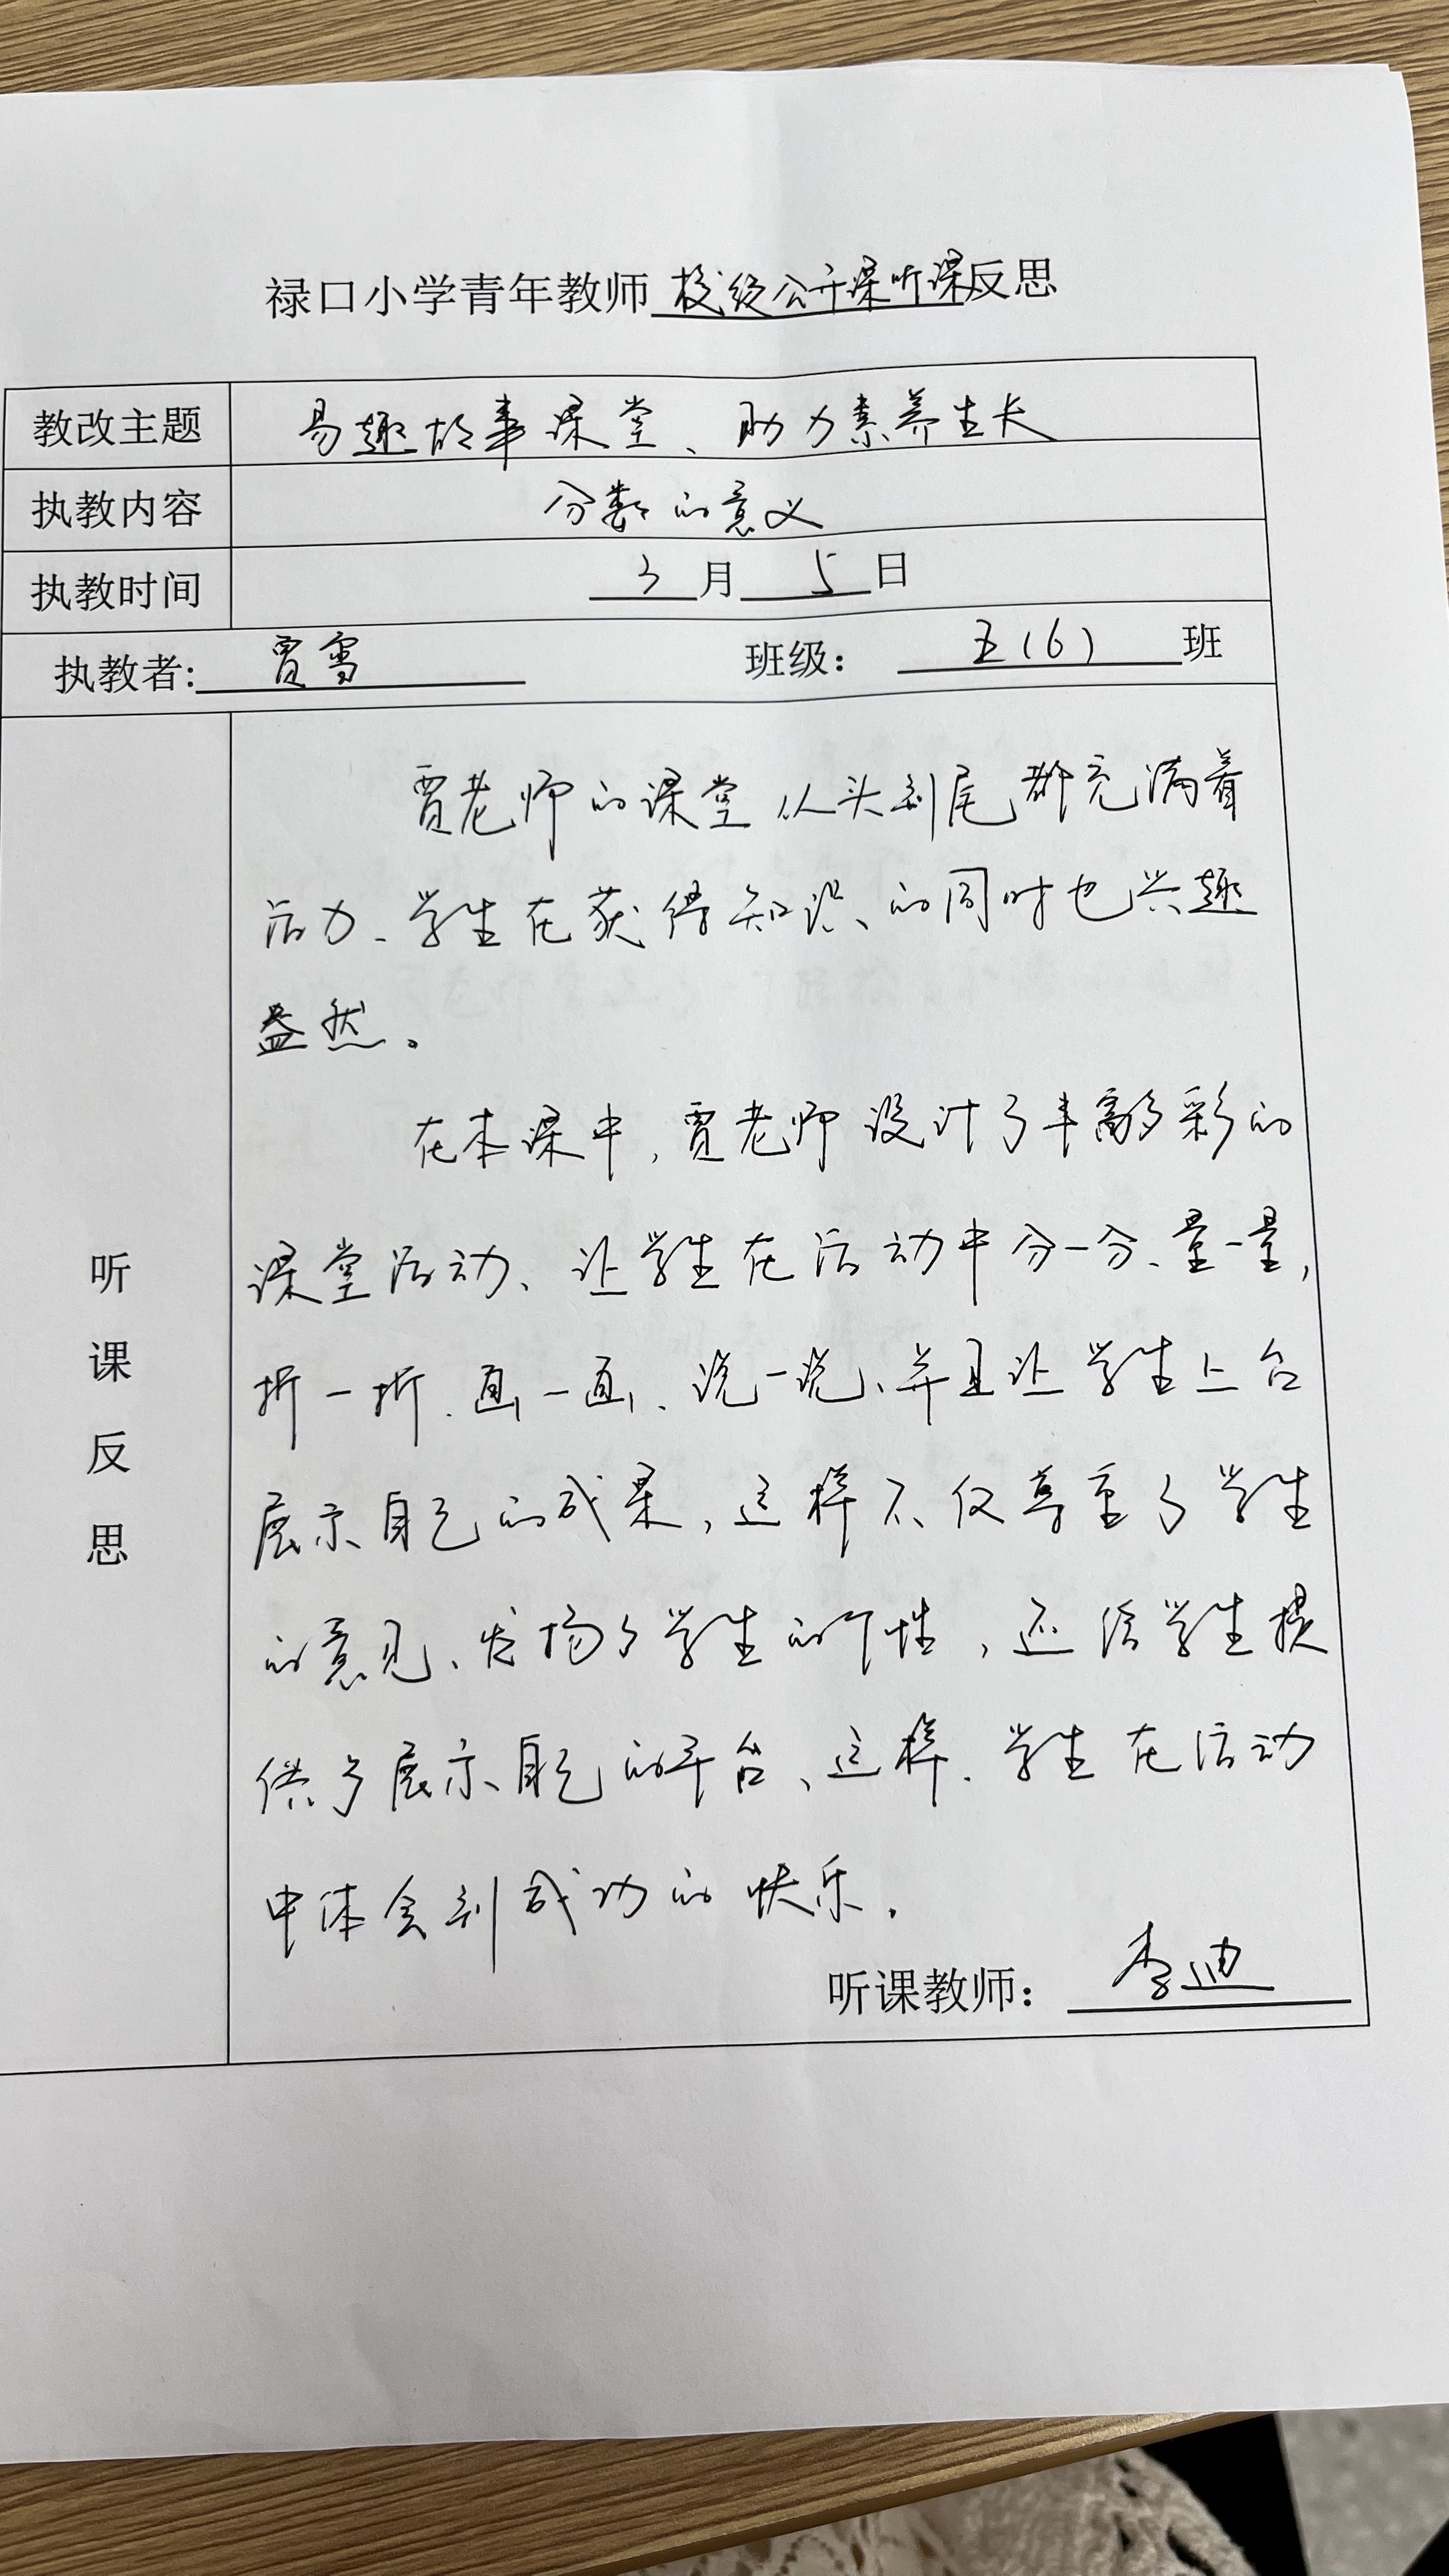 禄口小学青年教师校级公开课听课反思
教改主题 易趣故事课堂、助力素养生长
执教内容 分数的意义
执教时间 3月5日
执教者:贾雪 班级：五(6)班
听课反思
贾老师的课堂从头到尾都充满着
活力、学生在获得知识、的同时也兴趣
盎然。
在本课中,贾老师设计了丰富多彩的
课堂活动、让学生在活动中分一分、量一量,
折一折、画一画、说一说、并且让学生上台
展示自己的成果,这样不仅尊重了学生
的意见、发扬了学生的个性,还给学生提
供了展示自己的平台、这样、学生在活动
中体会到成功的快乐.
听课教师：李迪